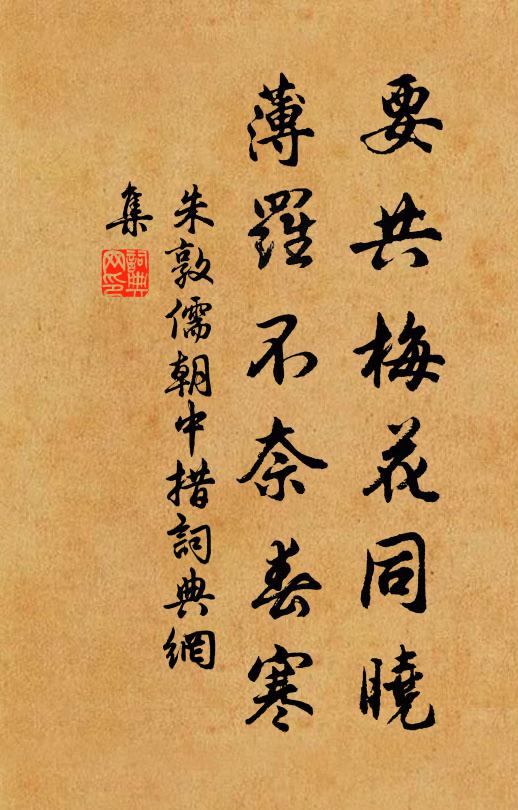 要共梅花同曉
薄羅不奈春寒
朱敦儒朝中措詞典網
集
詞典网印